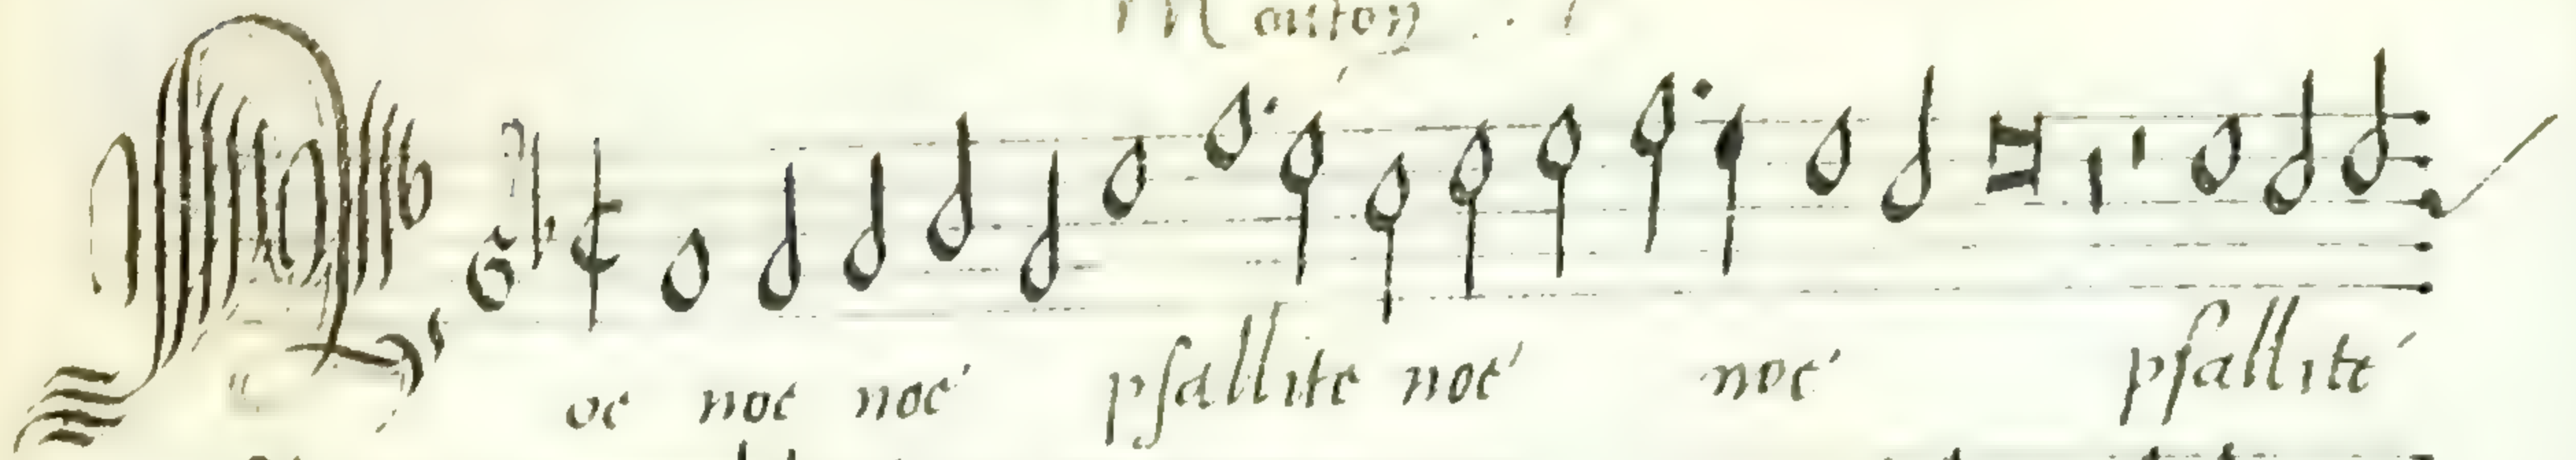 Mouton
Noe noe noe psallite noe noe psallite